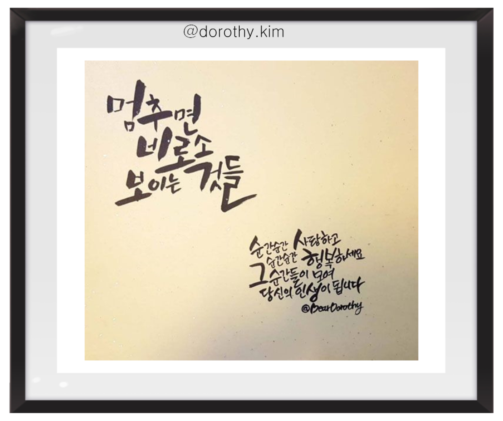 @dorothy.kim
멈추면
비로소
보이는 것들
순간순간 사랑하고
순간순간 행복하세요
그 순간들이 모여
당신의 인생이 됩니다
@DearDorothy